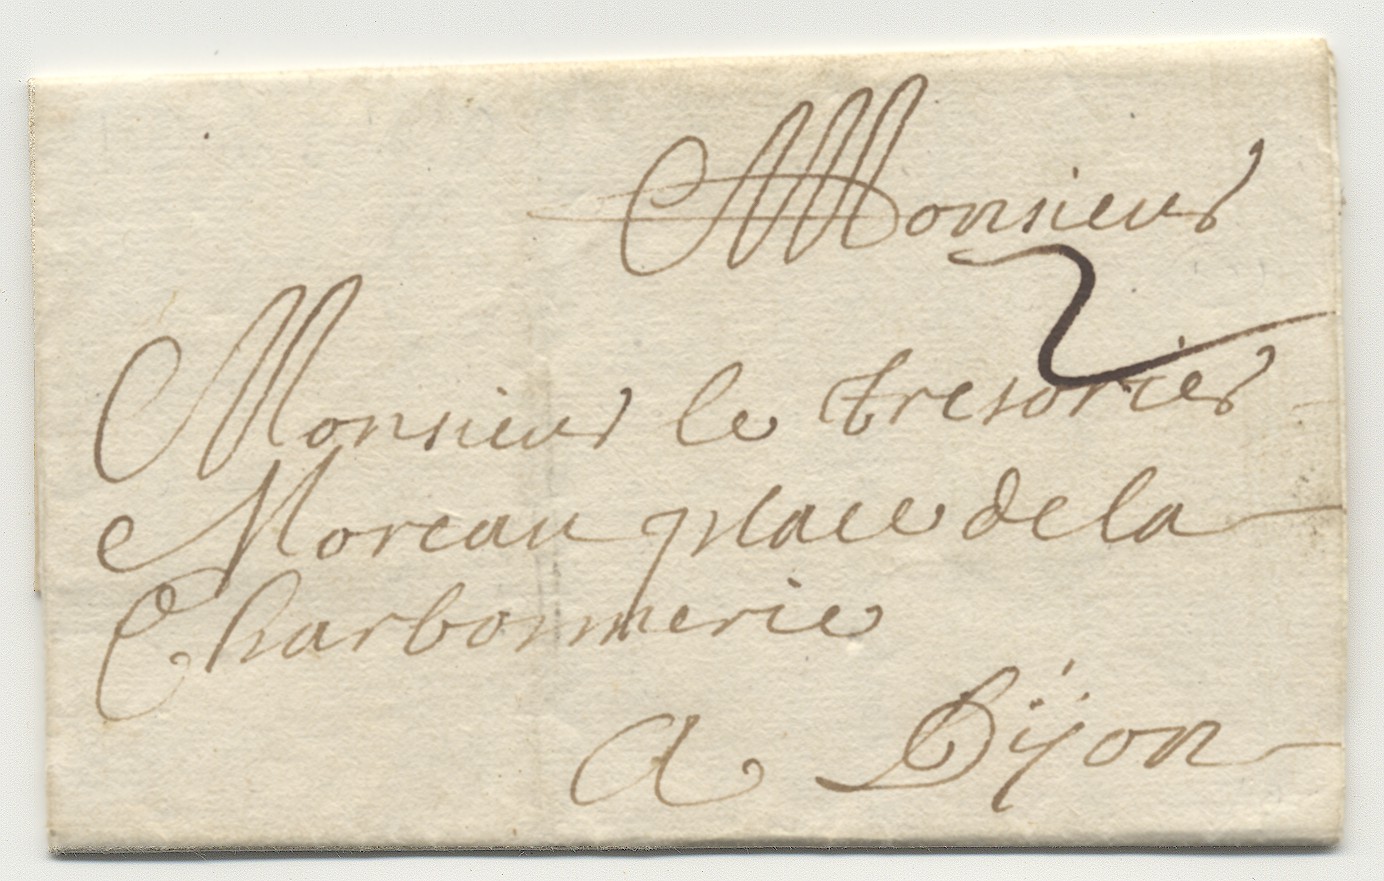 Monsieur
2
Monsieur le tresorier
Moreau place de la
Charbonnerie
a Dijon